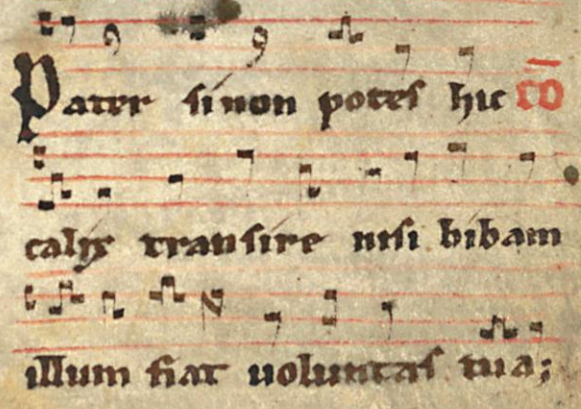 Pater si non potes hic cō
calix transire nisi bibam
illum fiat uoluntas tua;